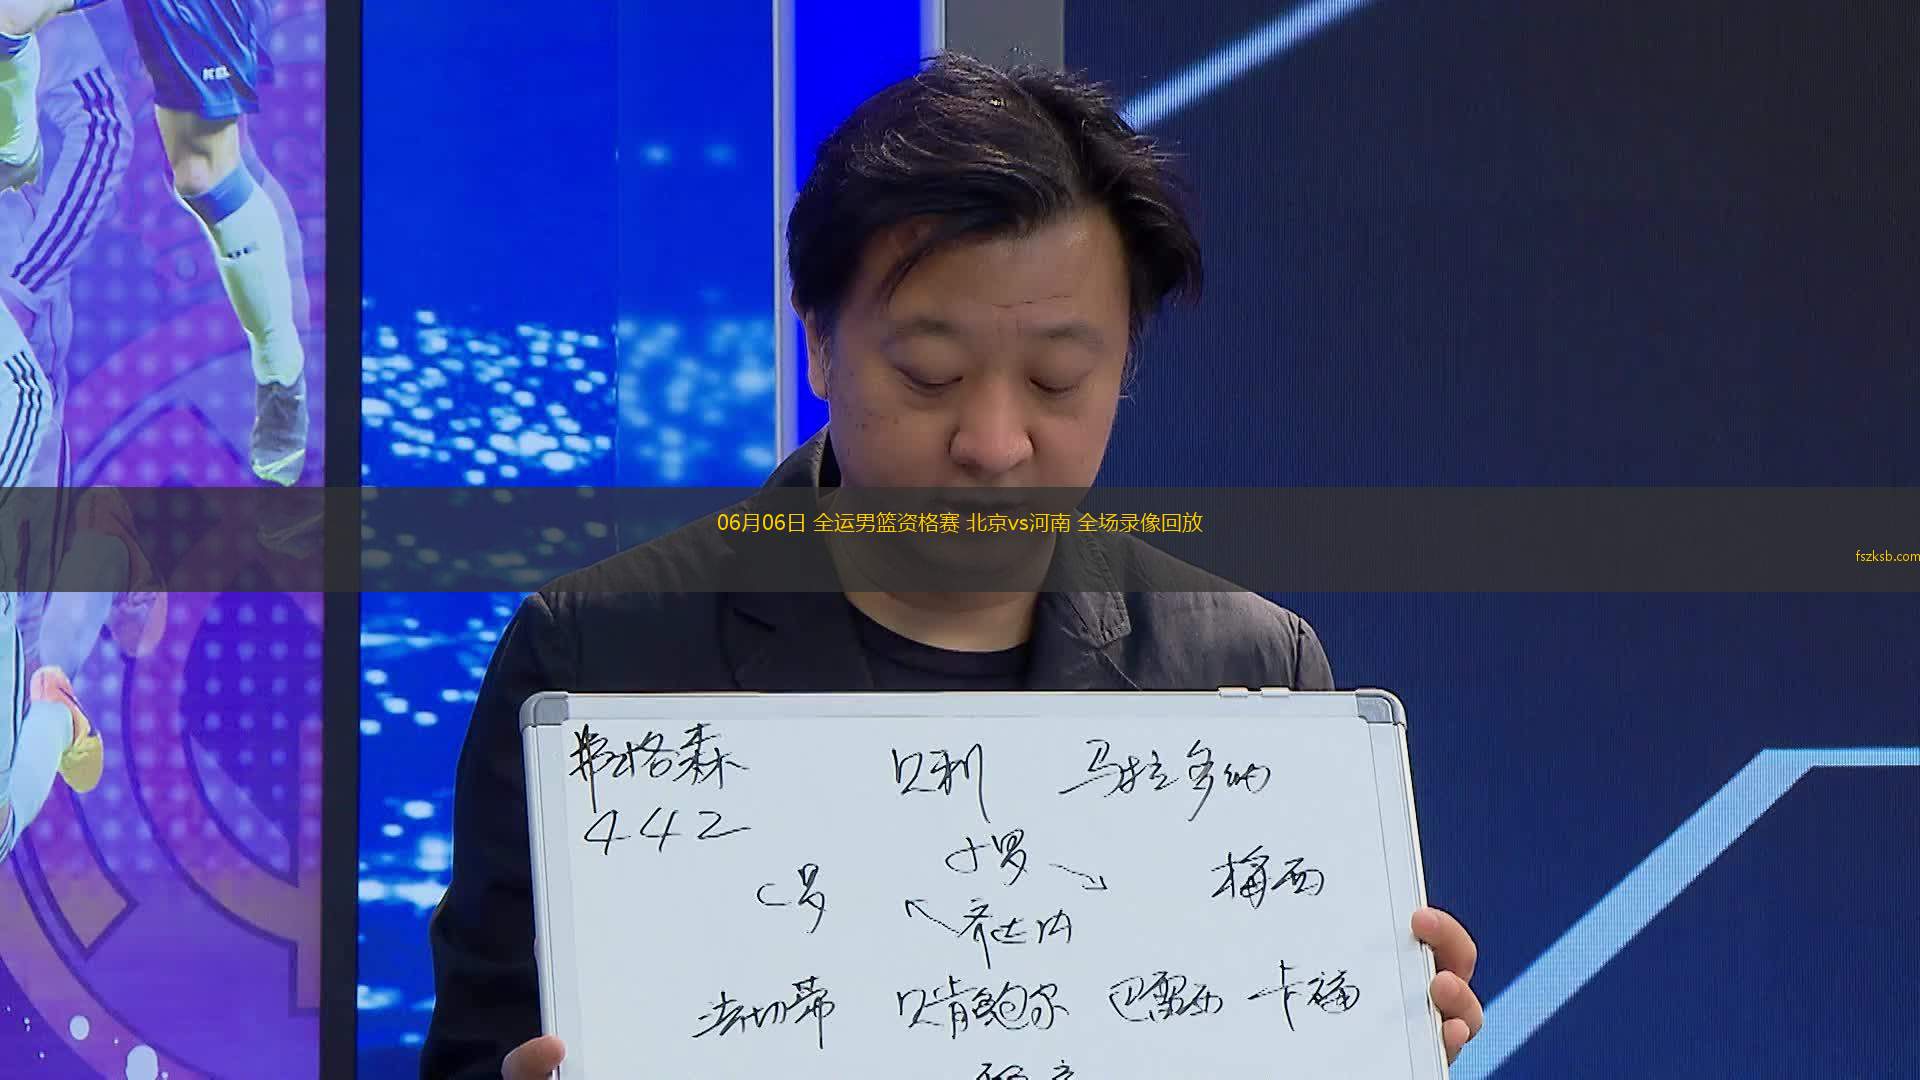 KEL
06月06日 全运男篮资格赛 北京vs河南 全场录像回放
fszksb.com
弗格森 贝利 马拉多纳
442
小罗
C罗 梅西
齐达内
法切蒂 贝肯鲍尔 巴雷西 卡福